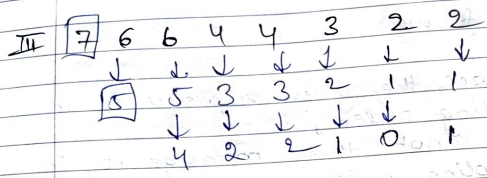 III 7 6 6 4 4 3 2 2
↓ ↓ ↓ ↓ ↓ ↓ ↓
5 5 3 3 2 1 1
↓ ↓ ↓ ↓ ↓
4 2 2 1 0 1